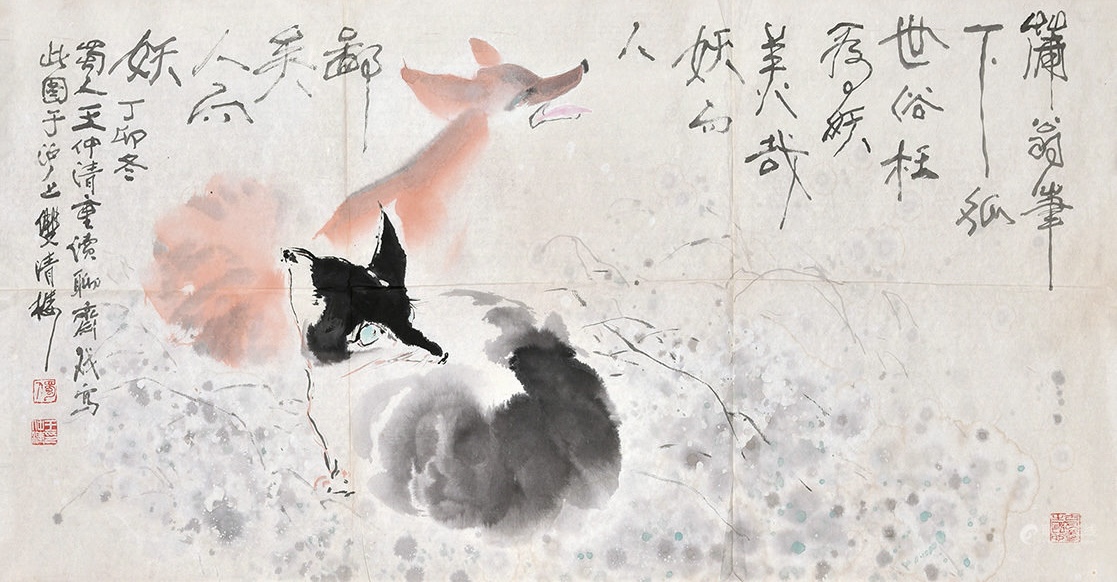 蒲翁筆
下狐
世俗枉
為妖
美哉
妖而
人
鄙
美
人而
妖
丁卯冬
蜀人王仲清重讀聊齋戏寫
此圖于沪上雙清樓